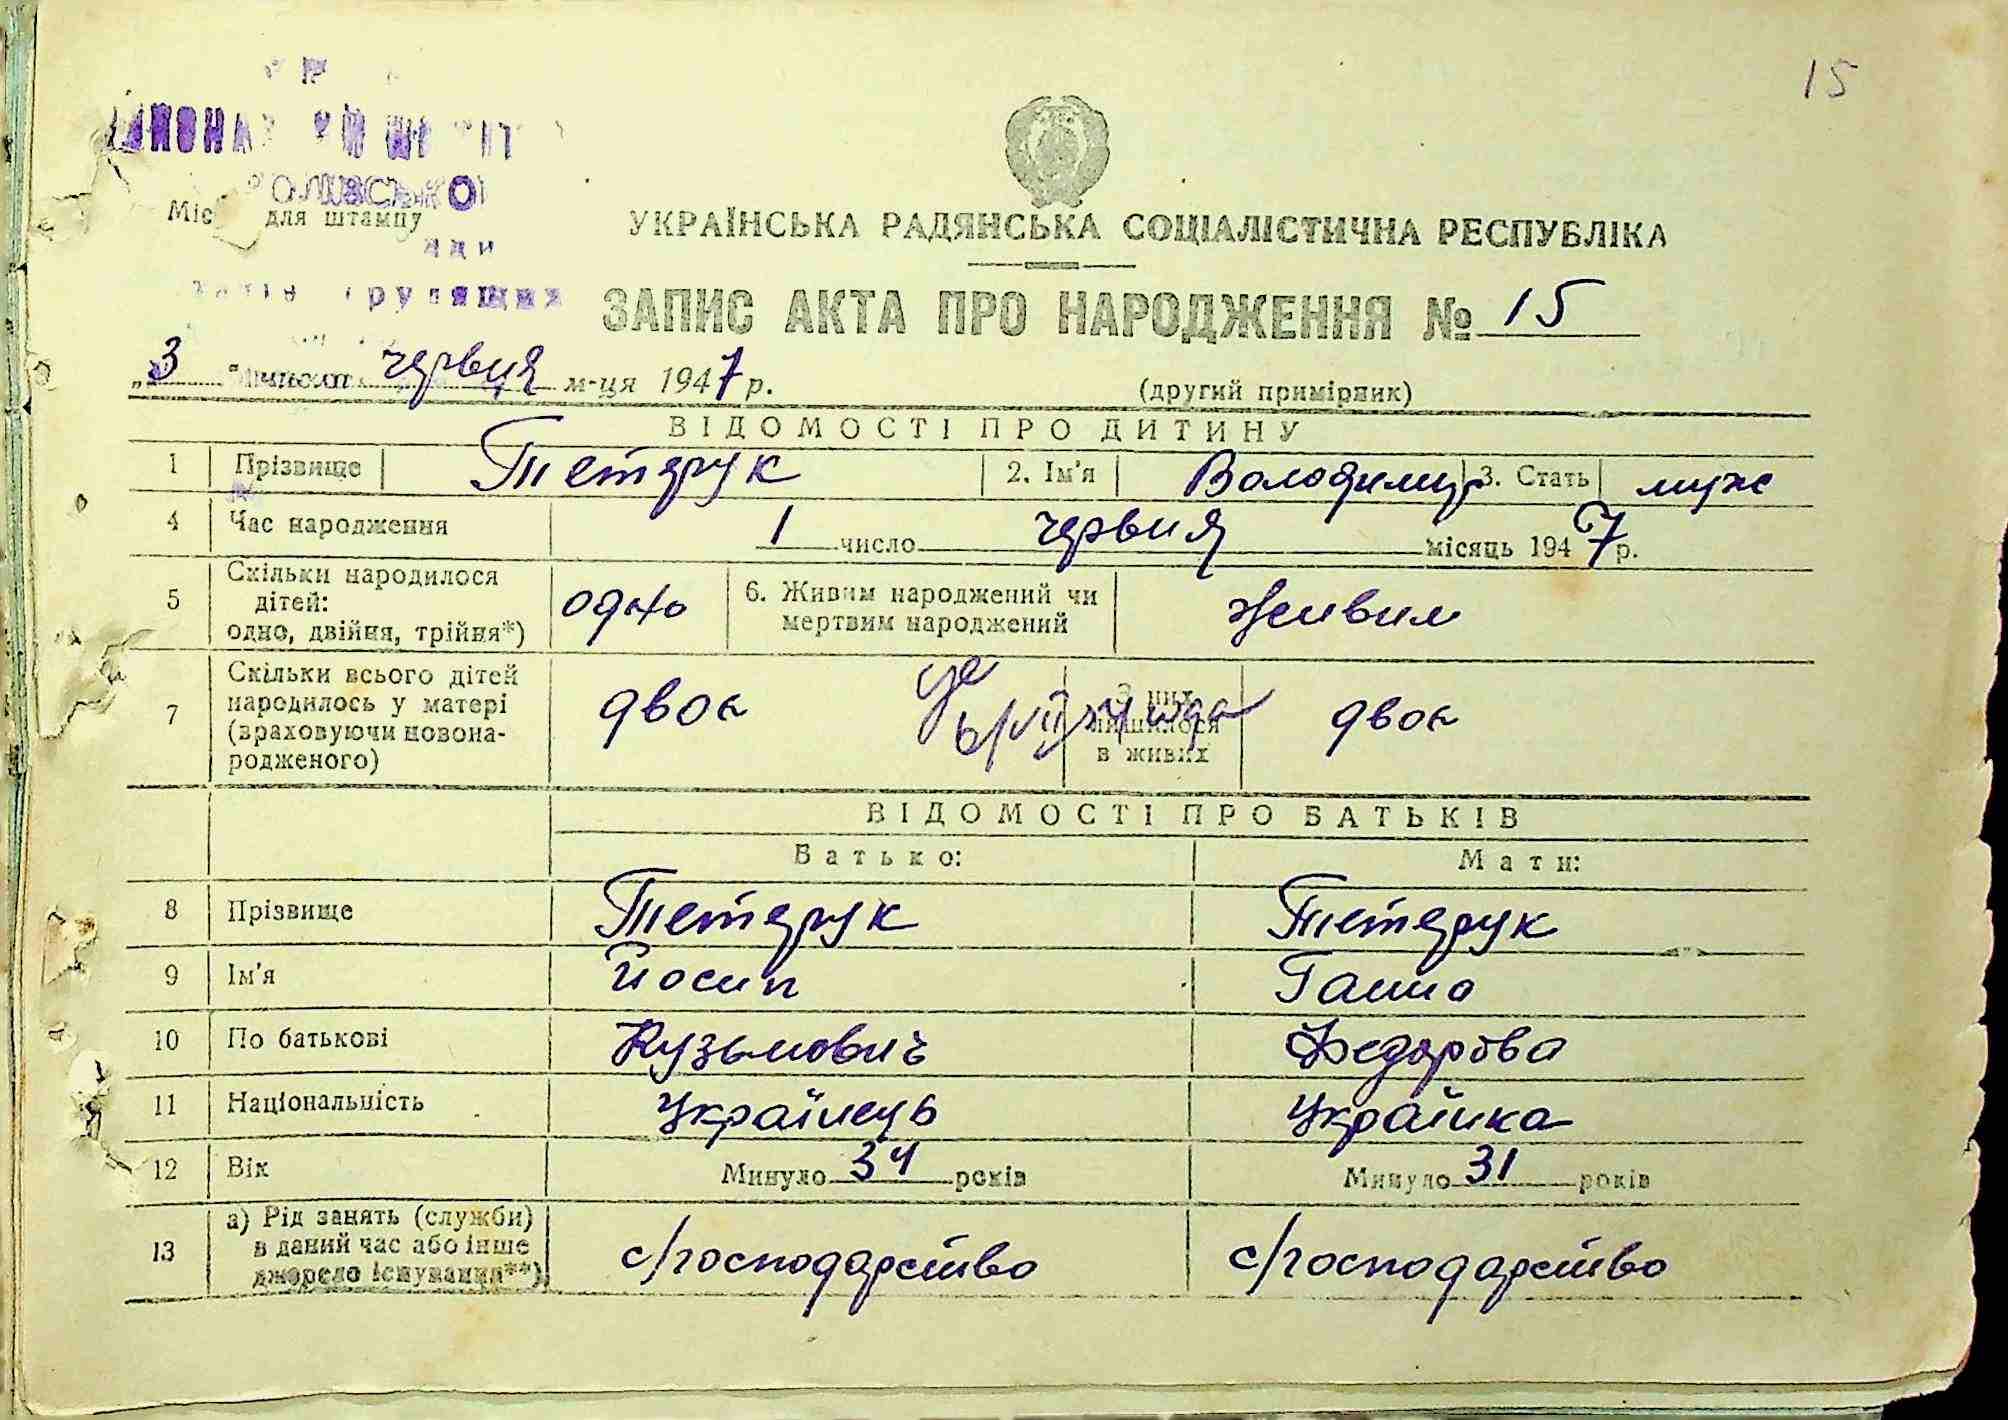 15
Місце для штампу
УКРАЇНСЬКА РАДЯНСЬКА СОЦІАЛІСТИЧНА РЕСПУБЛІКА
ЗАПИС АКТА ПРО НАРОДЖЕННЯ № 15
„3 червня м-ця 1947 р.
(другий примірник)
ВІДОМОСТІ ПРО ДИТИНУ
1 Прізвище Тетерук 2. Ім'я Володимир 3. Стать муж
4 Час народження 1 число червня місяць 1947 р.
5 Скільки народилося дітей: одно, двійня, трійня*) одно 6. Живим народжений чи мертвим народжений живим
7 Скільки всього дітей народилось у матері (враховуючи новонародженого) двоє З них лишилося в живих двоє
ВІДОМОСТІ ПРО БАТЬКІВ
Батько: Мати:
8 Прізвище Тетерук Тетерук
9 Ім'я Йосип Ганна
10 По батькові Кузьмович Федорова
11 Національність Українець Українка
12 Вік Минуло 34 років Минуло 31 років
13 а) Рід занять (служби) в даний час або інше джерело існування**) с/господарство с/господарство